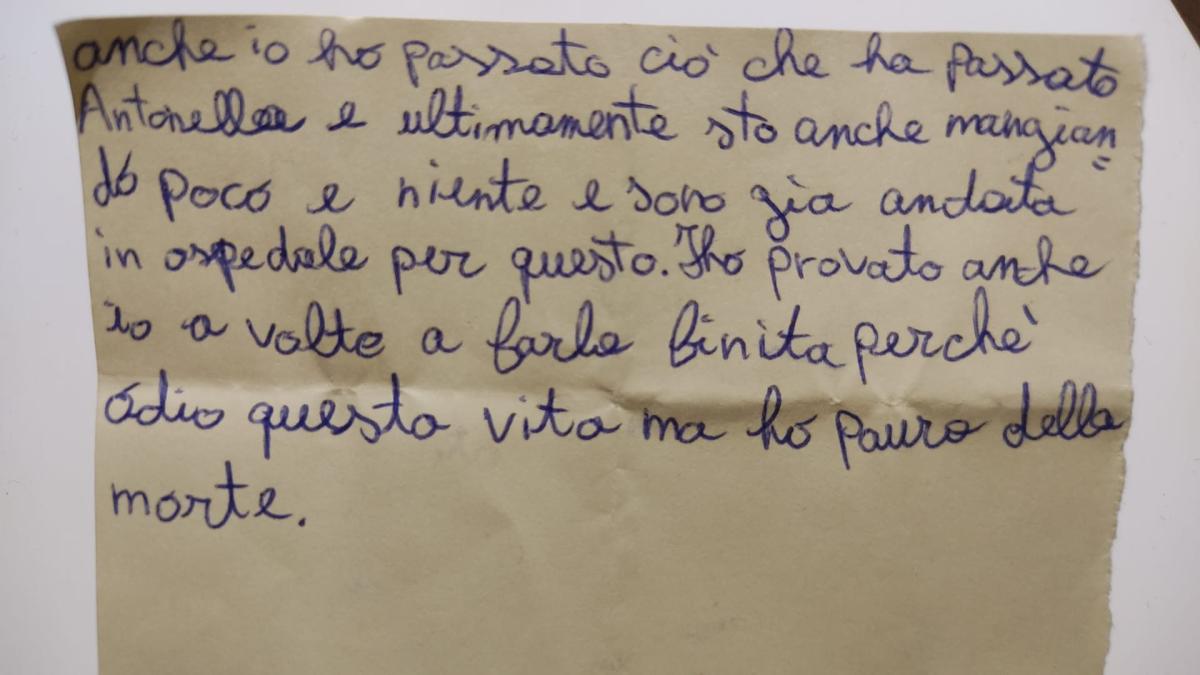 anche io ho passato ciò che ha passato
Antonella e ultimamente sto anche mangian=
do poco e niente e sono già andata
in ospedale per questo. Ho provato anche
io a volte a farla finita perchè
odio questa vita ma ho paura della
morte.